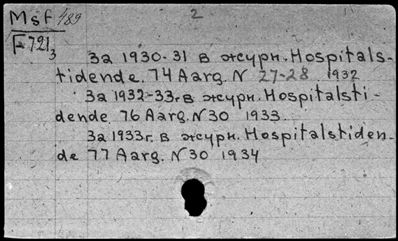 Msf/189
2
F-721₃
За 1930-31 в журн. Hospitals-
tidende. 74 Aarg. N 27-28 1932
За 1932-33г в журн. Hospitalsti-
dende 76 Aarg. N 30 1933
За 1933г. в журн. Hospitalstiden-
de 77 Aarg. N 30 1934